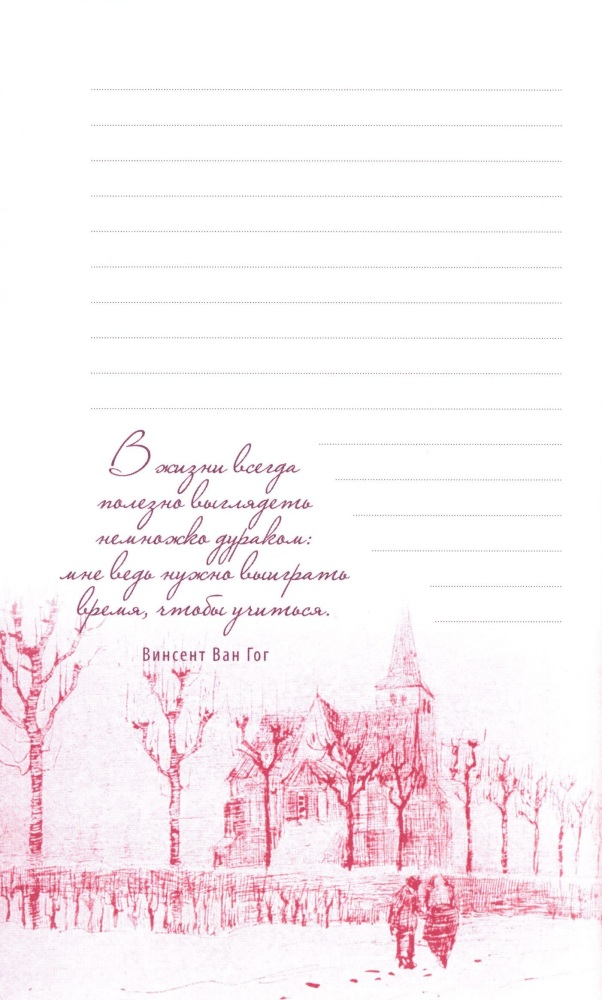 В жизни всегда
полезно выглядеть
немножко дураком:
мне ведь нужно выиграть
время, чтобы учиться.
Винсент Ван Гог